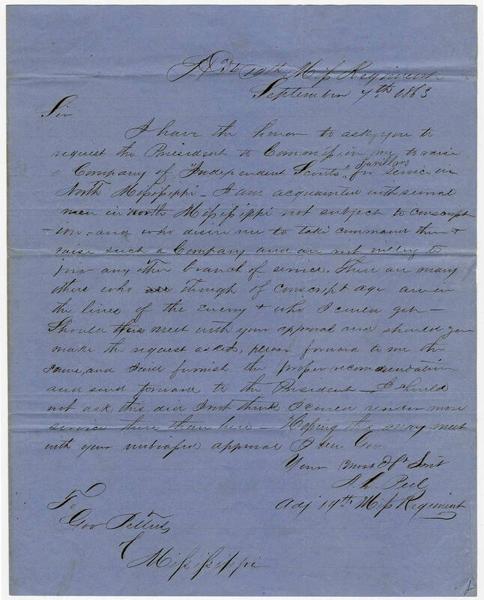 Hd Qrs 19th Miss Regiment
September 7th 1863
Sir
I have the honor to ask you to
request the President to Commission me to raise
a Company of "Independent Scouts" or Guerillas for service in
North Mississippi - I am acquainted with several
men in North Mississippi not subject to conscript
-ion - and who desire me to take command them &
raise such a Company and are not willing to
join any other branch of service. There are many
others who though of conscript age are in
the lines of the enemy & who I could get -
Should this meet with your approval and should you
make the request asked, please forward to me the
same, and I will furnish the proper recommendation
and send forward to the President - I should
not ask this did I not think I could render more
service there than here - Hoping this may meet
with your unbiased approval I am Gov
Your Most Obt Svt
A. L. Peel
Adj 19th Miss Regiment
To
Gov Pettus
Mississippi